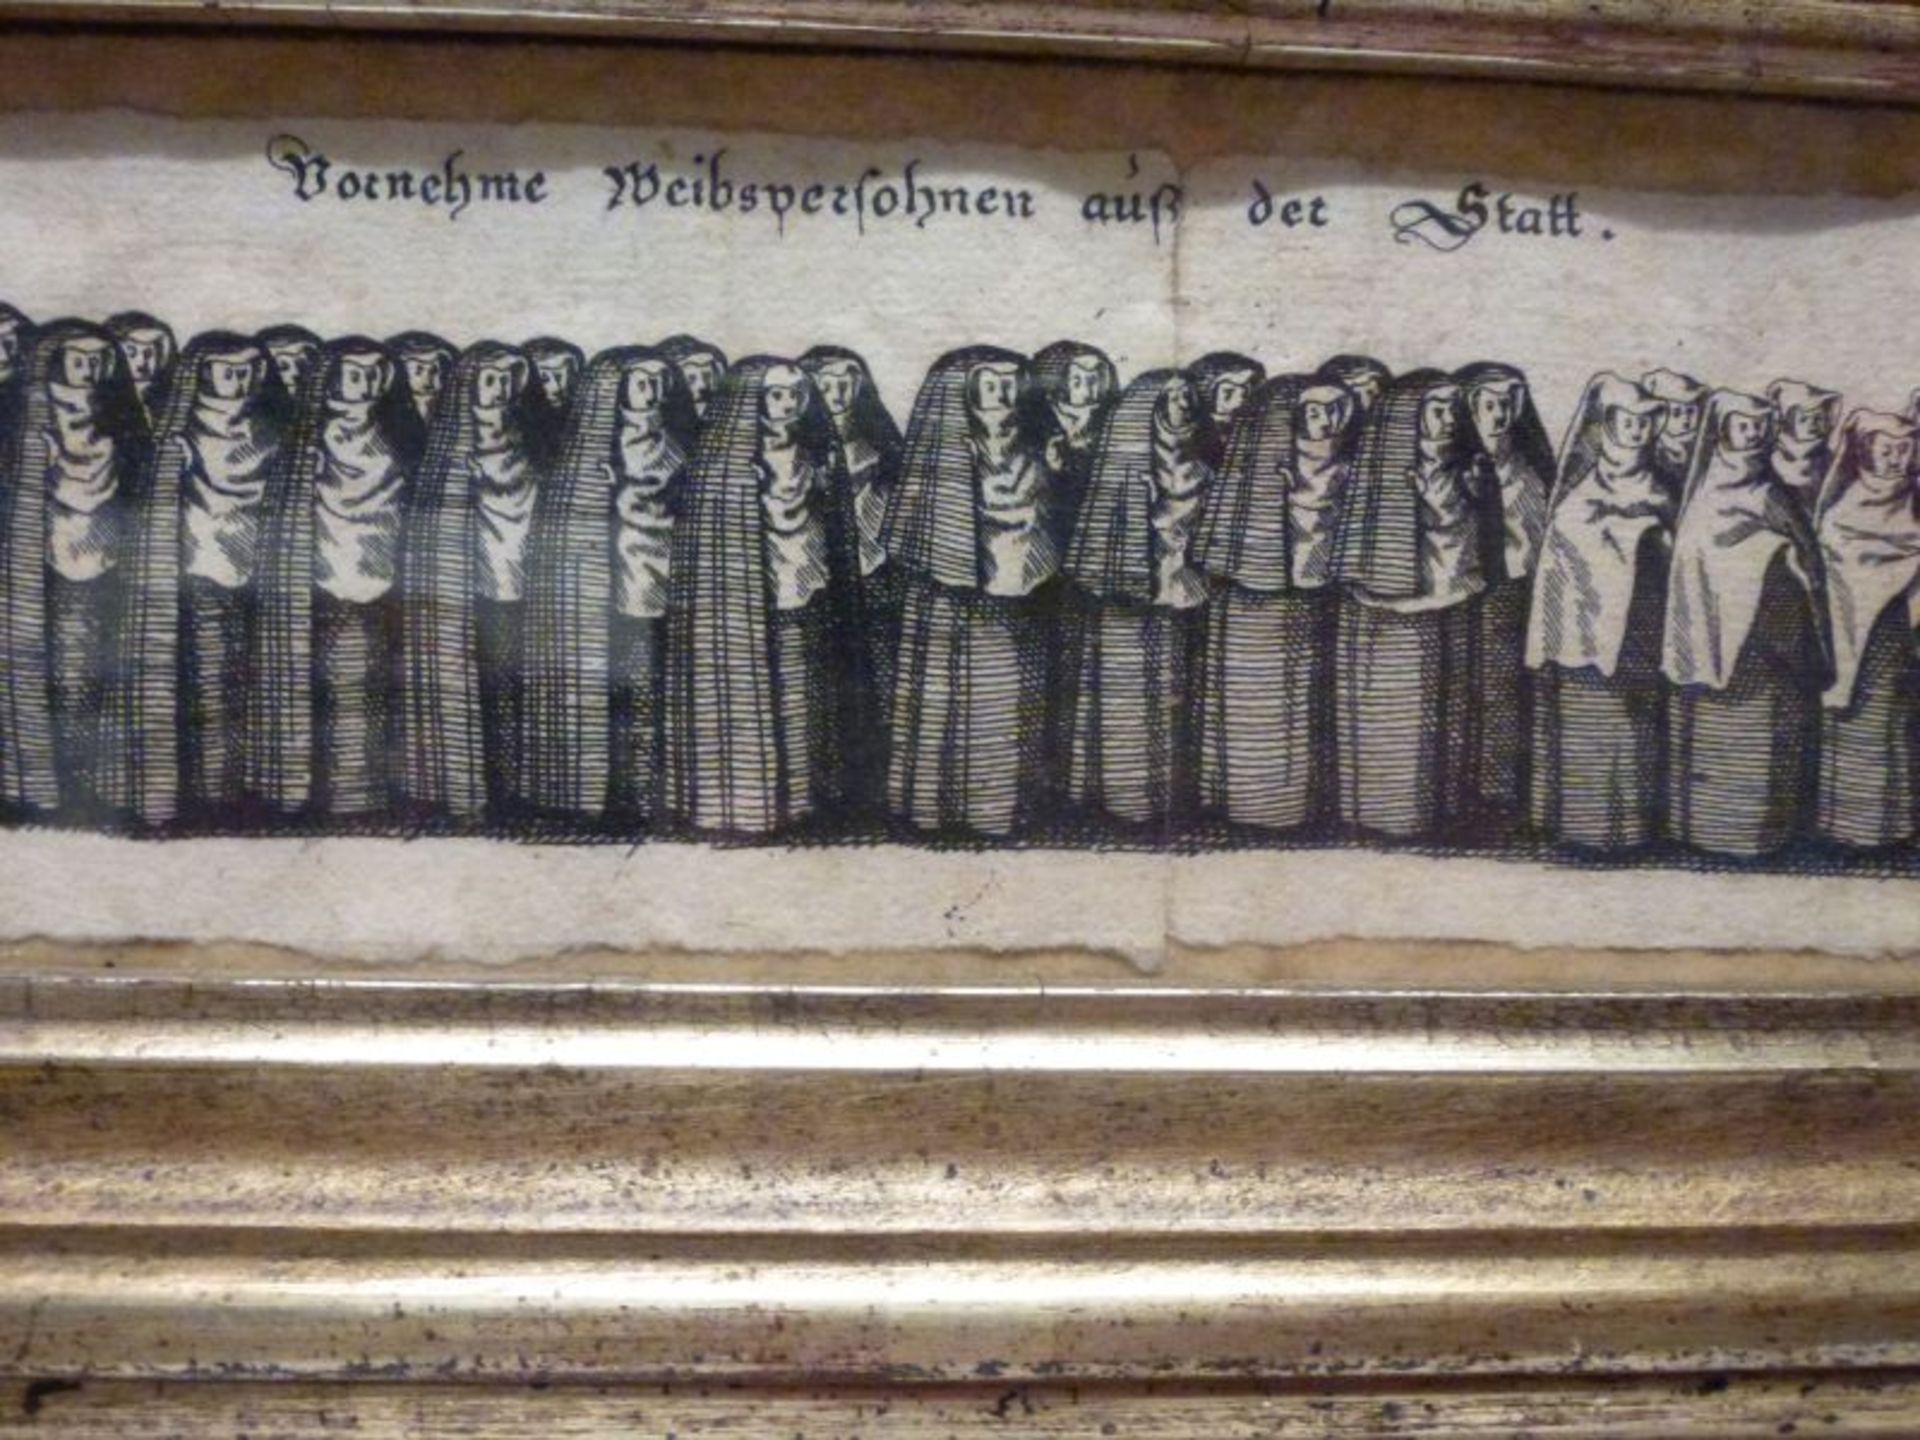 Vornehme Weibspersohnen auß der Statt.